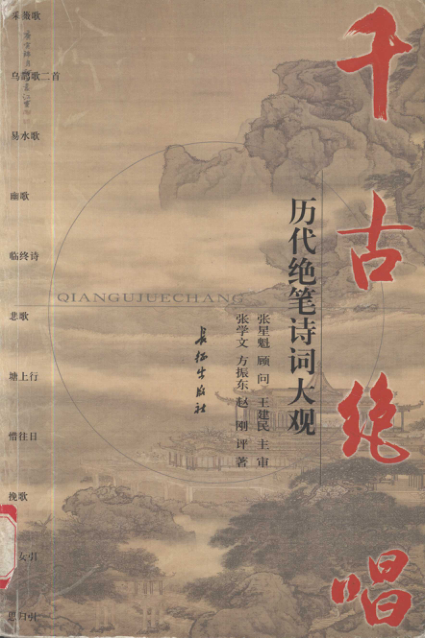 千古绝唱
历代绝笔诗词大观
张星魁 顾问 王建民 主审
张学文 方振东 赵刚 评著
长征出版社
QIANGUJUECHANG
采薇歌
乌鹊歌二首
易水歌
幽歌
临终诗
悲歌
塘上行
惜往日
挽歌
女引
思归引